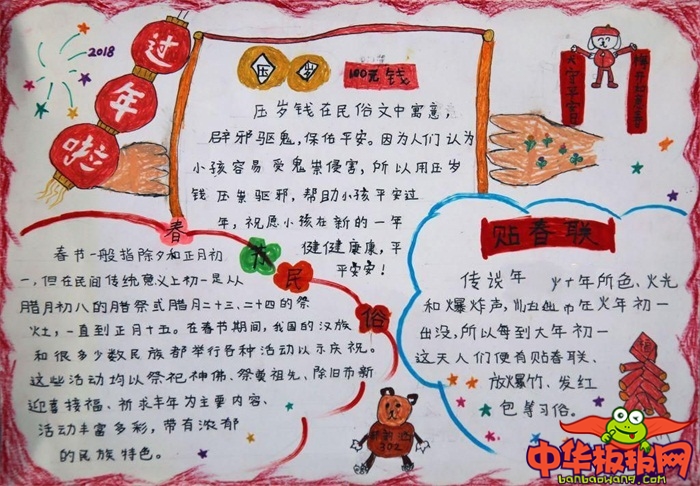 过年啦
2018
压岁
100元钱
压岁钱在民俗文中寓意,
辟邪驱鬼,保佑平安。因为人们认为
小孩容易受鬼祟侵害,所以用压岁
钱压祟驱邪,帮助小孩平安过
年,祝愿小孩在新的一年
健健康康,平
平安安!
春节民俗
春节一般指除夕和正月初
一,但在民间传统意义上初一是从
腊月初八的腊祭或腊月二十三、二十四的祭
灶,一直到正月十五。在春节期间,我国的汉族
和很多少数民族都举行各种活动以示庆祝。
这些活动均以祭祀神佛、祭奠祖先、除旧布新
迎喜接福、祈求丰年为主要内容、
活动丰富多彩,带有浓郁
的民族特色。
贴春联
传说年 年所色、火光
和爆炸声, 在火年初一
出没,所以每到大年初一
这天人们便有贴春联、
放爆竹、发红
包等习俗。
302
中华板报网
banbaowang.com